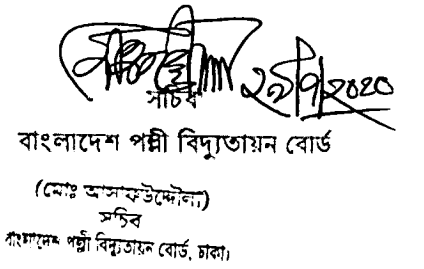 সচিব
বাংলাদেশ পল্লী বিদ্যুতায়ন বোর্ড
(মোঃ আসাফউদ্দৌলা)
সচিব
বাংলাদেশ পল্লী বিদ্যুতায়ন বোর্ড, ঢাকা।